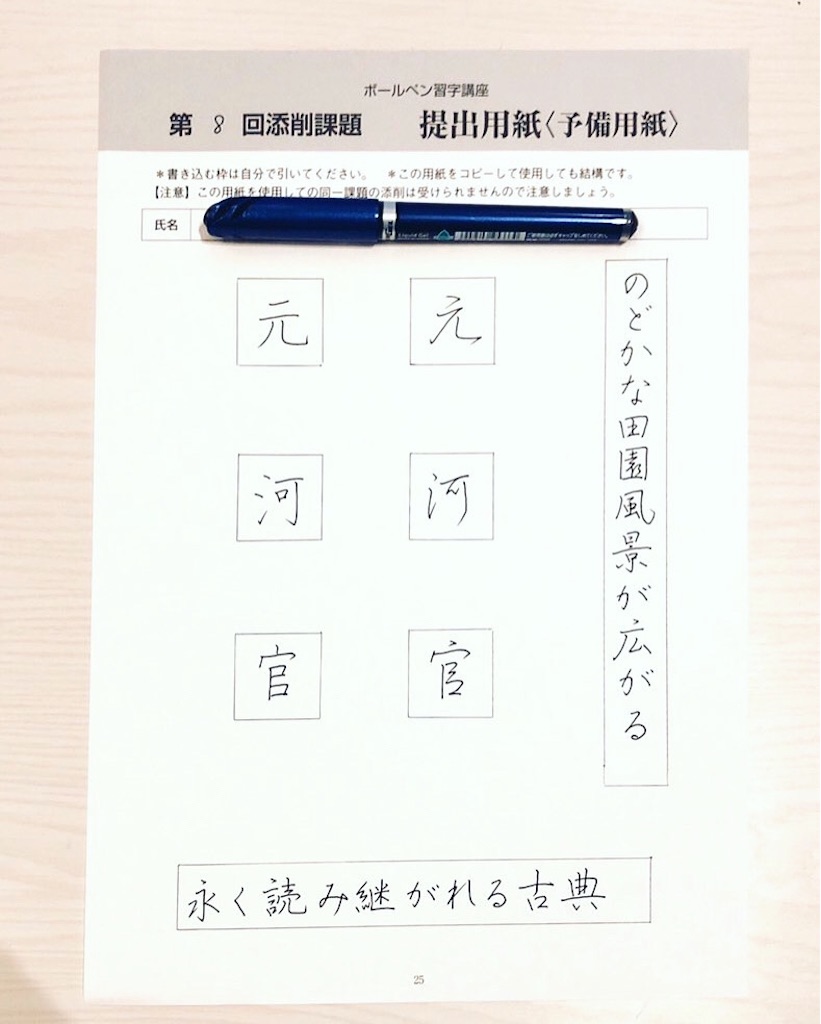 ボールペン習字講座
第 8 回添削課題 提出用紙〈予備用紙〉
＊書き込む枠は自分で引いてください。 ＊この用紙をコピーして使用しても結構です。
【注意】この用紙を使用しての同一課題の添削は受けられませんので注意しましょう。
氏名
のどかな田園風景が広がる
元 元
河 河
官 官
永く読み継がれる古典
25